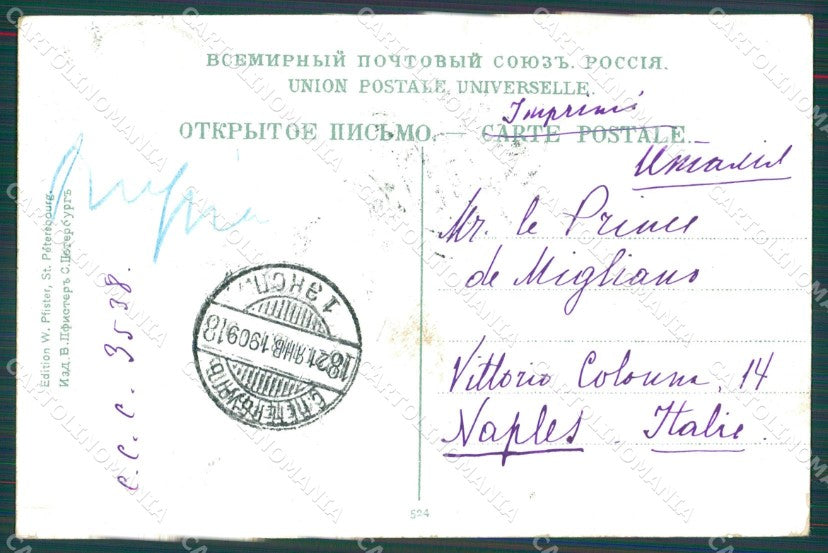 ВСЕМИРНЫЙ ПОЧТОВЫЙ СОЮЗЪ. РОССІЯ.
UNION POSTALE UNIVERSELLE.
Imprimé
ОТКРЫТОЕ ПИСЬМО. — CARTE POSTALE.
Италія
Mr. le Prince
de Migliano
Vittorio Colonna, 14
Naples. Italie.
Edition W. Pfister, St. Pétersbourg.
Изд. В. Пфистеръ С.Петербургъ
c.c.c. 3538.
1 ЭКСП.
18 21 ЯНВ 1909 18
С.ПЕТЕРБУРГЪ
524
CARTOLINOMANIA